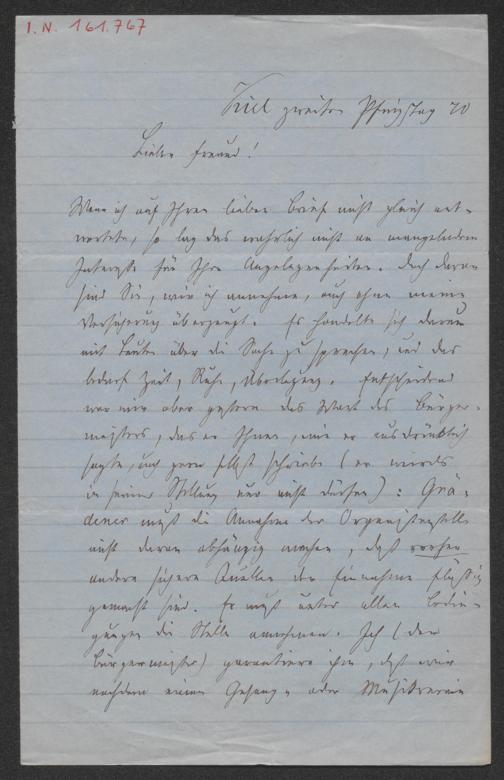 I. N. 161.767
Kiel zweiten Pfingsttag 70
Lieber Freund!
Wenn ich auf Ihren lieben Brief nicht gleich ant-
wortete, so lag das wahrlich nicht an mangelndem
Interesse für Ihre Angelegenheiten. Doch davon
sind Sie, wie ich annehme, auch ohne meine
Versicherung überzeugt. Es handelte sich darum
mit Leuten über die Sache zu sprechen, und das
bedarf Zeit, Ruhe, Überlegung. Entscheidend
war mir aber gestern das Wort des Bürger-
meisters, das er Ihnen, wie er ausdrücklich
sagte, auch gern selbst schriebe (er würde
in seiner Stellung nur nicht dürfen): Grä-
dener muß die Annahme der Organistenstelle
nicht davon abhängig machen, daß vorher
andere sichere Quellen der Einnahme flüssig
gemacht sind. Er muß unter allen Bedin-
gungen die Stelle annehmen. Ich (der
Bürgermeister) garantiere ihm, daß wir
nachdem einen Gesang- oder Musikverein